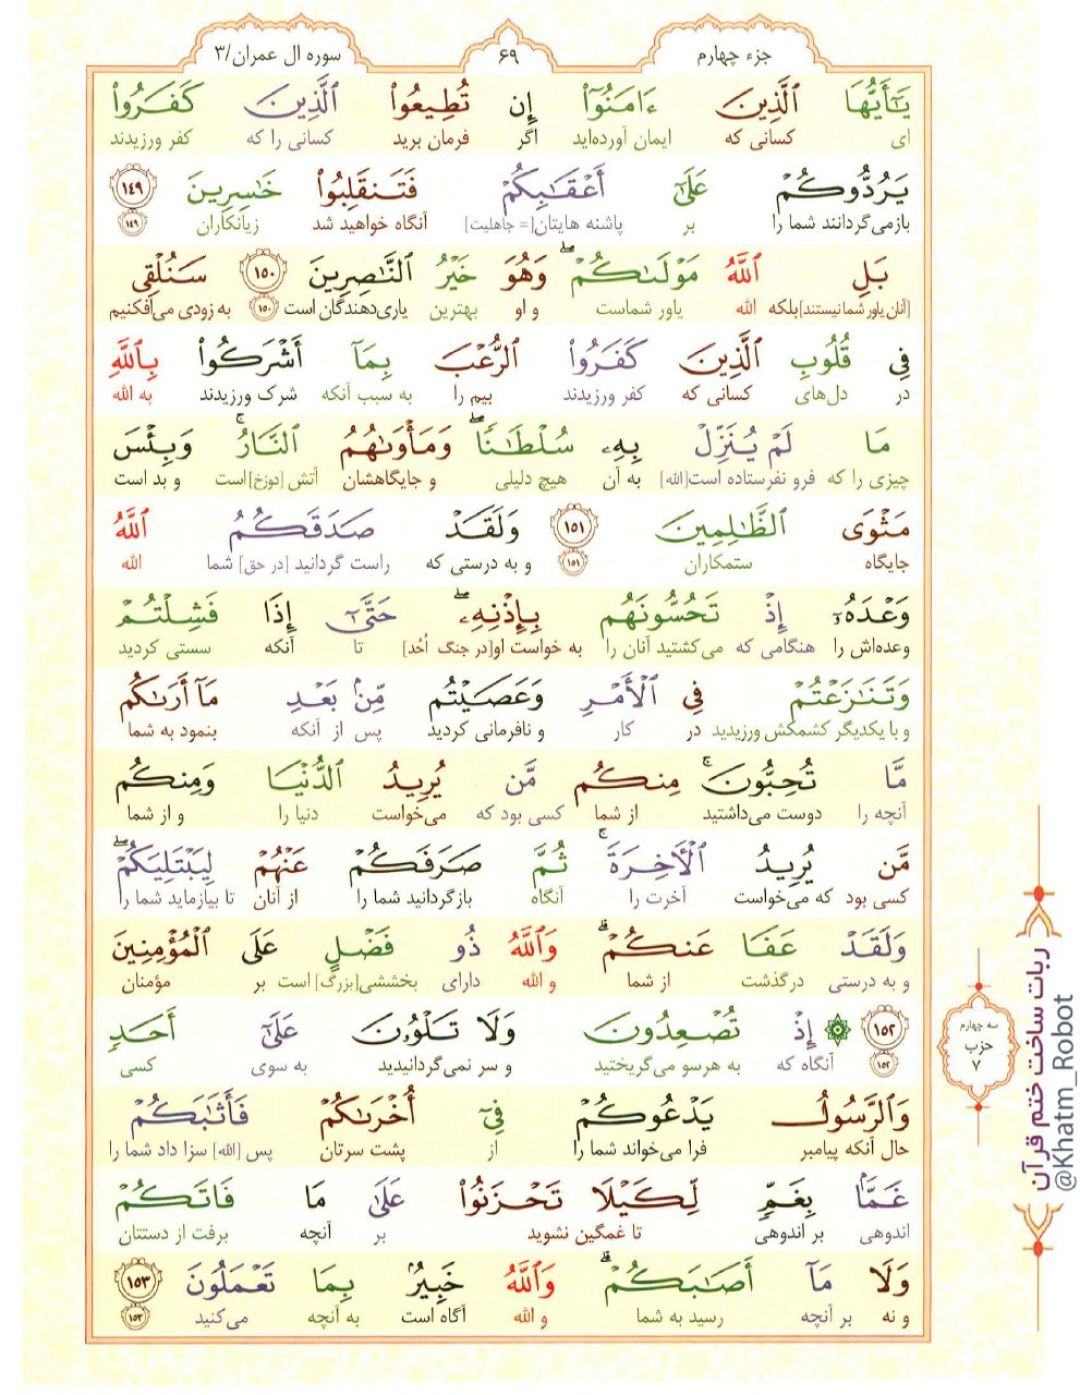 سوره ال عمران/۳
۶۹
جزء چهارم
يَـٰٓأَيُّهَا ٱلَّذِينَ ءَامَنُوٓا۟ إِن تُطِيعُوا۟ ٱلَّذِينَ كَفَرُوا۟
ای کسانی که ایمان آورده‌اید اگر فرمان برید کسانی را که کفر ورزیدند
يَرُدُّوكُمْ عَلَىٰٓ أَعْقَـٰبِكُمْ فَتَنقَلِبُوا۟ خَـٰسِرِينَ ١٤٩
بازمی‌گردانند شما را بر پاشنه هایتان[= جاهلیت] آنگاه خواهید شد زیانکاران ١٤٩
بَلِ ٱللَّهُ مَوْلَىٰكُمْ ۖ وَهُوَ خَيْرُ ٱلنَّـٰصِرِينَ ١٥٠ سَنُلْقِى
[آنان یاور شما نیستند]بلکه الله یاور شماست و او بهترین یاری‌دهندگان است ١٥٠ به زودی می‌افکنیم
فِى قُلُوبِ ٱلَّذِينَ كَفَرُوا۟ ٱلرُّعْبَ بِمَآ أَشْرَكُوا۟ بِٱللَّهِ
در دل‌های کسانی که کفر ورزیدند بیم را به سبب آنکه شرک ورزیدند به الله
مَا لَمْ يُنَزِّلْ بِهِۦ سُلْطَـٰنًا ۖ وَمَأْوَىٰهُمُ ٱلنَّارُ ۚ وَبِئْسَ
چیزی را که فرو نفرستاده است[الله] به آن هیچ دلیلی و جایگاهشان آتش [دوزخ]است و بد است
مَثْوَى ٱلظَّـٰلِمِينَ ١٥١ وَلَقَدْ صَدَقَكُمُ ٱللَّهُ
جایگاه ستمکاران ١٥١ و به درستی که راست گردانید [در حق] شما الله
وَعْدَهُۥٓ إِذْ تَحُسُّونَهُم بِإِذْنِهِۦ ۖ حَتَّىٰٓ إِذَا فَشِلْتُمْ
وعده‌اش را هنگامی که می‌کشتید آنان را به خواست او[در جنگ اُحُد] تا آنکه سستی کردید
وَتَنَـٰزَعْتُمْ فِى ٱلْأَمْرِ وَعَصَيْتُم مِّنۢ بَعْدِ مَآ أَرَىٰكُم
و با یکدیگر کشمکش ورزیدید در کار و نافرمانی کردید پس از آنکه بنمود به شما
مَّا تُحِبُّونَ ۚ مِنكُم مَّن يُرِيدُ ٱلدُّنْيَا وَمِنكُم
آنچه را دوست می‌داشتید از شما کسی بود که می‌خواست دنیا را و از شما
مَّن يُرِيدُ ٱلْـَٔاخِرَةَ ۚ ثُمَّ صَرَفَكُمْ عَنْهُمْ لِيَبْتَلِيَكُمْ ۖ
کسی بود که می‌خواست آخرت را آنگاه بازگردانید شما را از آنان تا بیازماید شما را
وَلَقَدْ عَفَا عَنكُمْ ۗ وَٱللَّهُ ذُو فَضْلٍ عَلَى ٱلْمُؤْمِنِينَ
و به درستی درگذشت از شما و الله دارای بخششی[بزرگ] است بر مؤمنان
١٥٢ ۞ إِذْ تُصْعِدُونَ وَلَا تَلْوُۥنَ عَلَىٰٓ أَحَدٍ
١٥٢ آنگاه که به هرسو می‌گریختید و سر نمی‌گردانیدید به سوی کسی
وَٱلرَّسُولُ يَدْعُوكُمْ فِىٓ أُخْرَىٰكُمْ فَأَثَـٰبَكُمْ
حال آنکه پیامبر فرا می‌خواند شما را از پشت سرتان پس [الله] سزا داد شما را
غَمًّۢا بِغَمٍّ لِّكَيْلَا تَحْزَنُوا۟ عَلَىٰ مَا فَاتَكُمْ
اندوهی بر اندوهی تا غمگین نشوید بر آنچه برفت از دستتان
وَلَا مَآ أَصَـٰبَكُمْ ۗ وَٱللَّهُ خَبِيرٌۢ بِمَا تَعْمَلُونَ ١٥٣
و نه بر آنچه رسید به شما و الله آگاه است به آنچه می‌کنید ١٥٣
سه چهارم
حزب
۷
ربات ساخت ختم قرآن
@Khatm_Robot